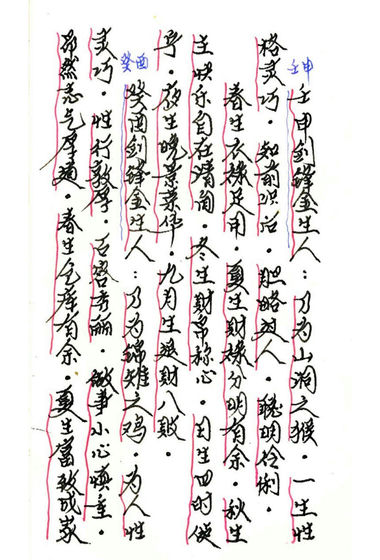 壬申
壬申剑锋金生人：乃为山洞之猴。一生性
格灵巧。知前识后。胆略过人。聪明伶俐。
春生衣禄足用。夏生财禄分明有余。秋生
生快乐自在清闲。冬生财帛称心。日生四时
亨。夜生晚景荣华。九月生狼财八败。
癸酉
癸酉剑锋金生人：乃为锦雉之鸡。为人性
灵巧。性行敦厚。容秀丽。做事小心慎重。
然志气厚道。春生仓库有余。夏生富成家